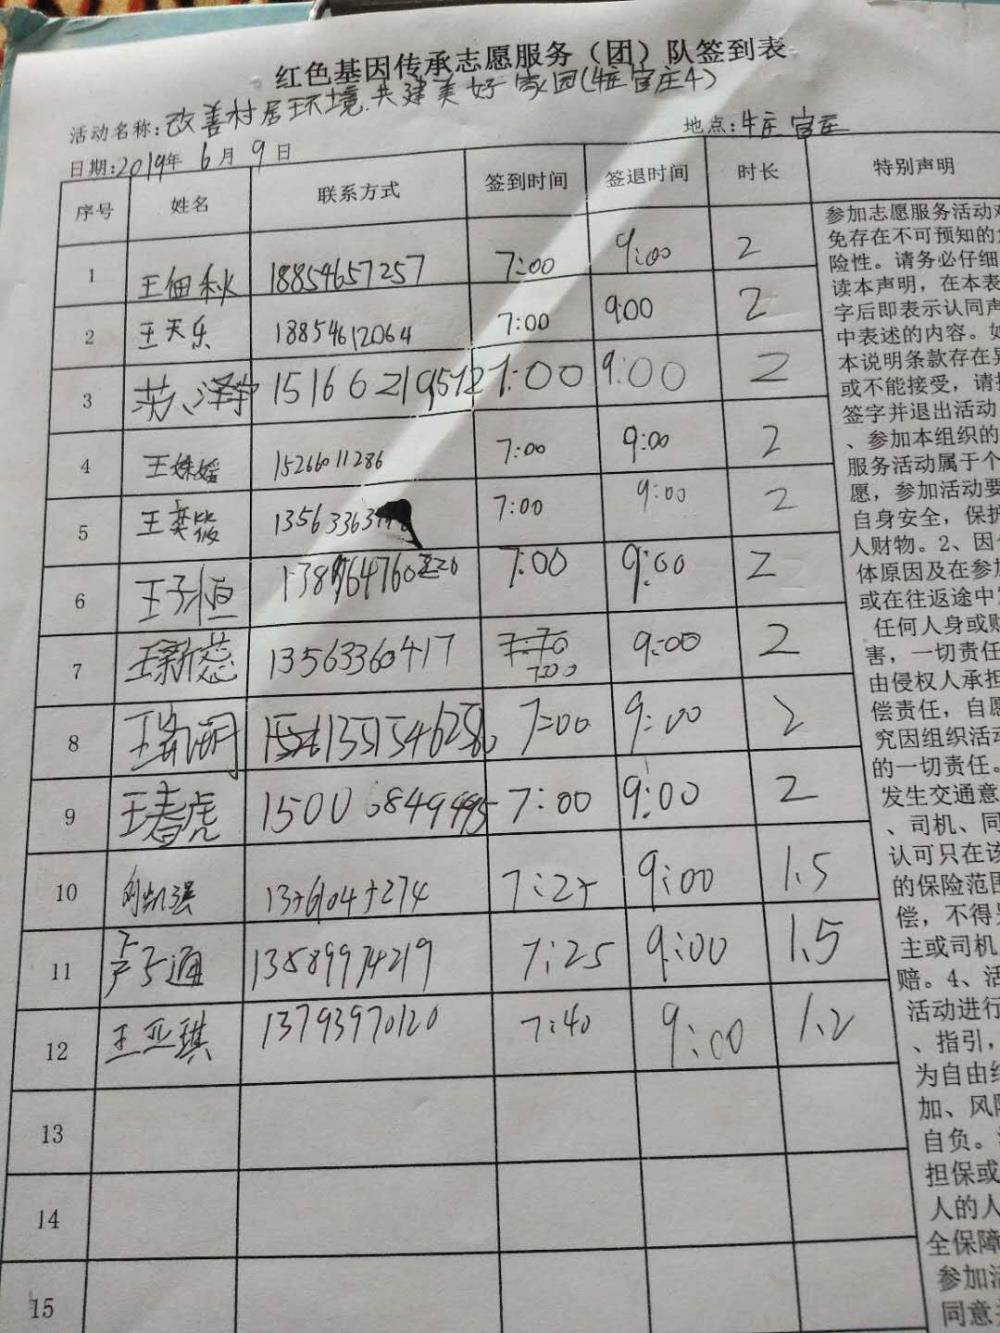 红色基因传承志愿服务（团）队签到表
活动名称:改善村居环境.共建美好家园(牛庄官庄4)
地点:牛庄官庄
日期:2019年6月9日
序号 姓名 联系方式 签到时间 签退时间 时长 特别声明
1 王佃秋 18854657257 7:00 9:00 2
2 王天乐 18854612064 7:00 9:00 2
3 15166219512 7:00 9:00 2
4 王姝媛 15266011286 7:00 9:00 2
5 王奕筱 7:00 9:00 2
6 王子恒 7:00 9:00 2
7 王新蕊 13563360417 7:00 9:00 2
8 7:00 9:00 2
9 王春虎 7:00 9:00 2
10 刘凯强 7:25 9:00 1.5
11 卢子通 13589974219 7:25 9:00 1.5
12 王亚琪 13793970120 7:40 9:00 1.2
13
14
15
参加志愿服务活动难
免存在不可预知的
险性。请务必仔细
读本声明，在本表
字后即表示认同声
中表述的内容。如
本说明条款存在异
或不能接受，请
签字并退出活动
、参加本组织的
服务活动属于个
愿，参加活动要
自身安全，保护
人财物。2、因
体原因及在参加
或在往返途中
任何人身或财
害，一切责任
由侵权人承担
偿责任，自愿
究因组织活动
的一切责任。
发生交通意
、司机、同
认可只在该
的保险范围
偿，不得
主或司机
赔。4、活
活动进行
、指引，
为自由组
加、风险
自负。
担保或
人的人
全保障
参加活
同意